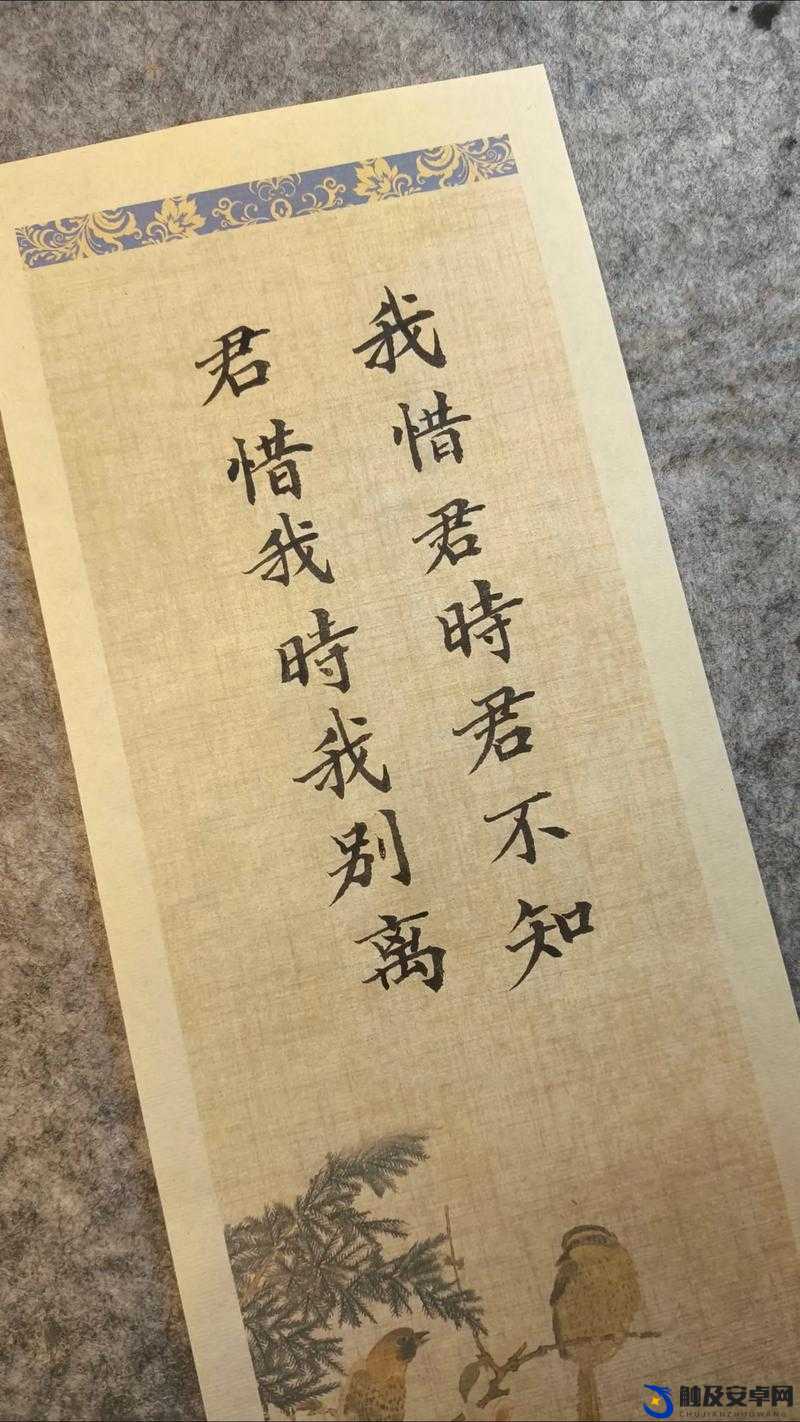 我惜君時君不知
君惜我時我别离
触及安卓网
CHUJIANZHUOWANG